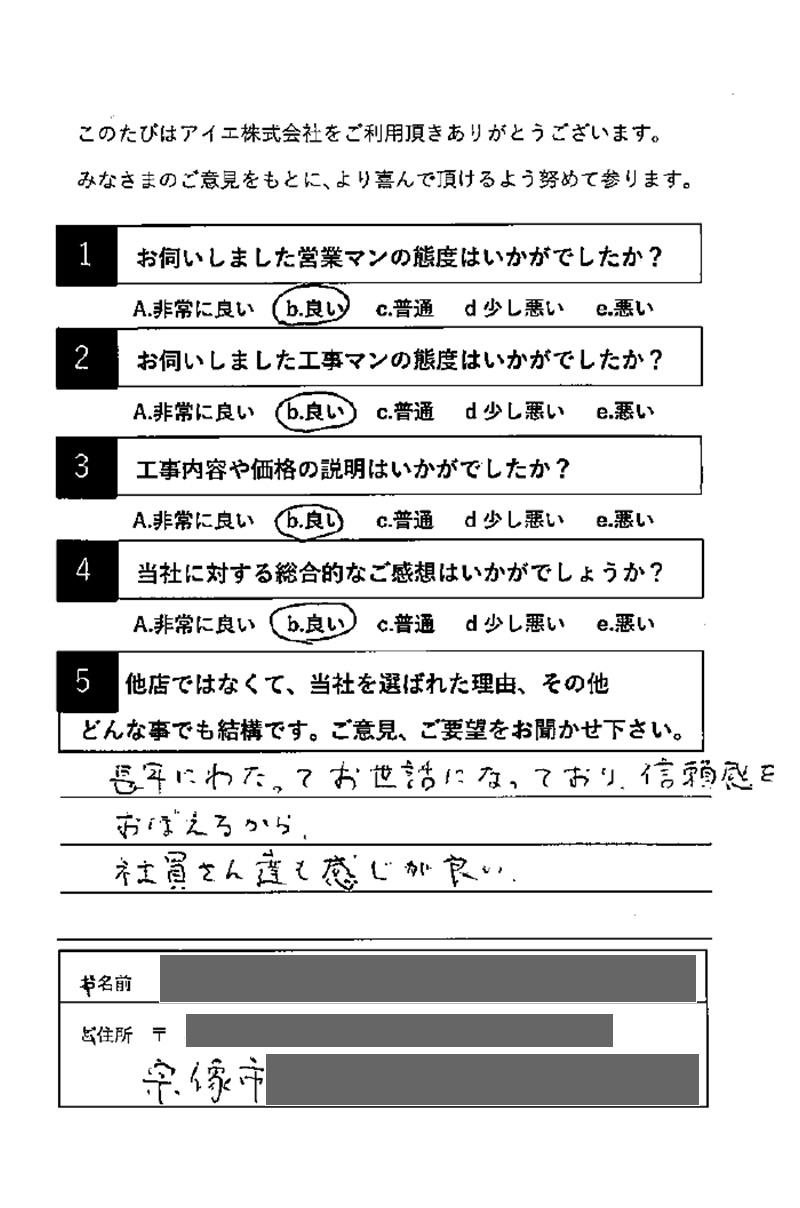 このたびはアイエ株式会社をご利用頂きありがとうございます。
みなさまのご意見をもとに、より喜んで頂けるよう努めて参ります。
1 お伺いしました営業マンの態度はいかがでしたか?
A.非常に良い b.良い c.普通 d 少し悪い e.悪い
2 お伺いしました工事マンの態度はいかがでしたか?
A.非常に良い b.良い c.普通 d 少し悪い e.悪い
3 工事内容や価格の説明はいかがでしたか?
A.非常に良い b.良い c.普通 d 少し悪い e.悪い
4 当社に対する総合的なご感想はいかがでしょうか?
A.非常に良い b.良い c.普通 d 少し悪い e.悪い
5 他店ではなくて、当社を選ばれた理由、その他
どんな事でも結構です。ご意見、ご要望をお聞かせ下さい。
長年にわたってお世話になっており、信頼感を
おぼえるから、
社員さん達も感じが良い、
お名前
ご住所 〒
宗像市